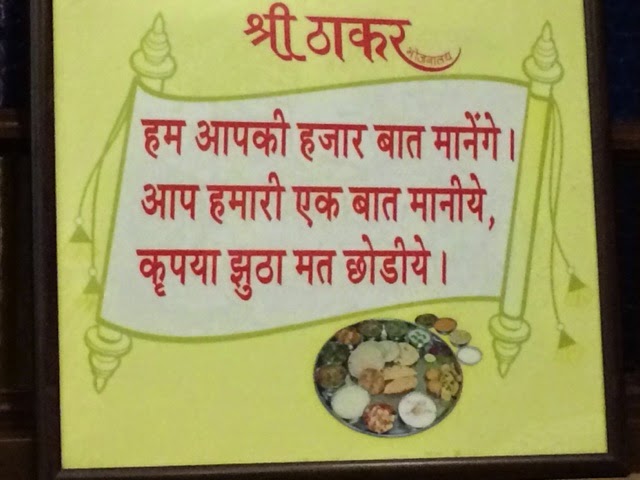 श्री ठाकर
भोजनालय
हम आपकी हजार बात मानेंगे।
आप हमारी एक बात मानीये,
कृपया झुठा मत छोडीये।